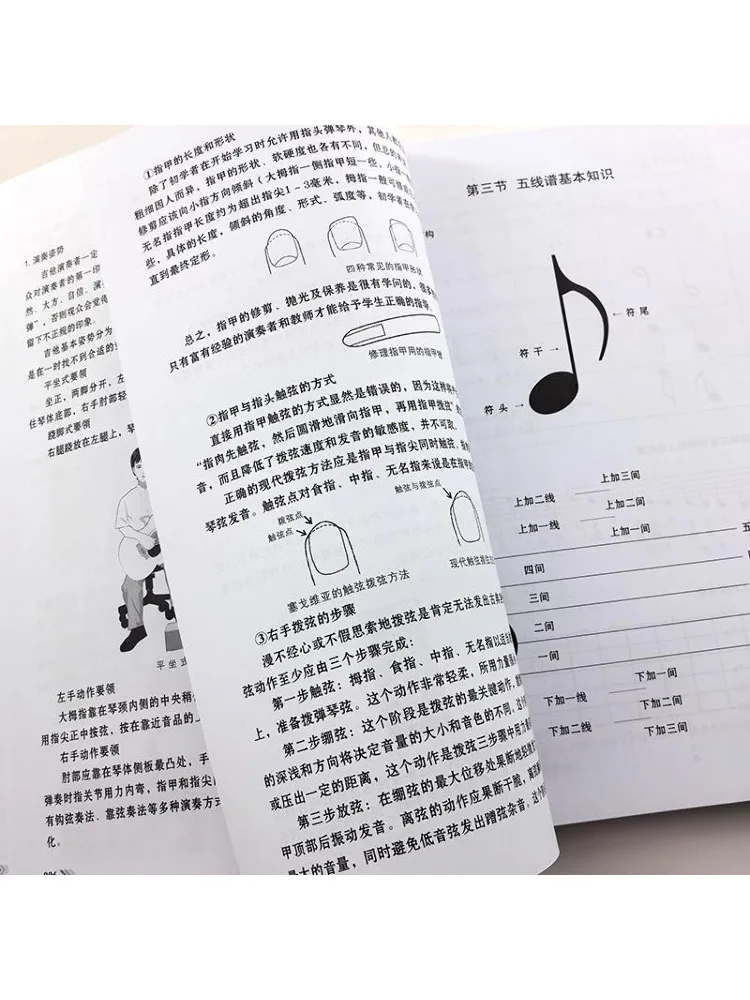 1. 演奏姿势
吉他演奏者一定
众对演奏者的第一印
然、大方、自信、演
弹”，否则观众会觉得
留下不正规的印象。
吉他基本姿势分为
是在一时找不到合适的
平坐式要领
坐正，两脚分开，左
住琴体底部，右手肘部轻
跷脚式要领
右腿跷放在左腿上，琴
平坐式
左手动作要领
大拇指靠在琴颈内侧的中央稍
用指尖正中按弦，按在靠近音品的
右手动作要领
肘部应靠在琴体侧板最凸处，手
弹奏时指关节用力内弯，指甲和指尖
有钩弦奏法、靠弦奏法等多种演奏方
化。
006
①指甲的长度和形状
除了初学者在开始学习时允许用指头弹琴外，其他人
粗细因人而异，指甲的形状、软硬度也各有不同，但总的
修剪应该向小指方向倾斜（大拇指一侧指甲短一些，小指
无名指指甲长度约为超出指尖1~3毫米，拇指一般可修
些，具体的长度，倾斜的角度、形式、弧度等，初学者在
直到最终定形。
四种常见的指甲形状
总之，指甲的修剪、抛光及保养是很有学问的，很多
只有富有经验的演奏者和教师才能给予学生正确的指导
修理指甲用的指甲锉
②指甲与指头触弦的方式
直接用指甲触弦的方式显然是错误的，因为这样
“指肉先触弦，然后圆滑地滑向指甲，再用指甲拨弦”
音，而且降低了拨弦速度和发音的敏感度，并不可取。
正确的现代拨弦方法应是指甲与指尖同时触弦，
琴弦发音。触弦点对食指、中指、无名指来说是在指甲
拨弦点
触弦点
触弦与拨弦点
塞戈维亚的触弦拨弦方法
现代触弦拨弦
③右手拨弦的步骤
漫不经心或不假思索地拨弦是肯定无法发出古典
弦动作至少应由三个步骤完成：
第一步触弦：拇指、食指、中指、无名指以
上，准备拨弹琴弦。这个动作非常轻柔，所用力量
第二步绷弦：这个阶段是拨弦的最关键动作，
的深浅和方向将决定音量的大小和音色的不同，
或压出一定的距离，这个动作是拨弦三步骤中用力
第三步放弦：在绷弦的最大位移处果断地
甲顶部后振动发音。离弦的动作应果断干脆，
最大的音量，同时避免低音弦发出蹭弦杂音，这个
第三节 五线谱基本知识
构
符尾
符干
符头
上加二线
上加三间
上加一线
上加二间
上加一间
五
四间
三间
二间
一间
下加一间
下加一线
下加二间
下加二线
下加三间